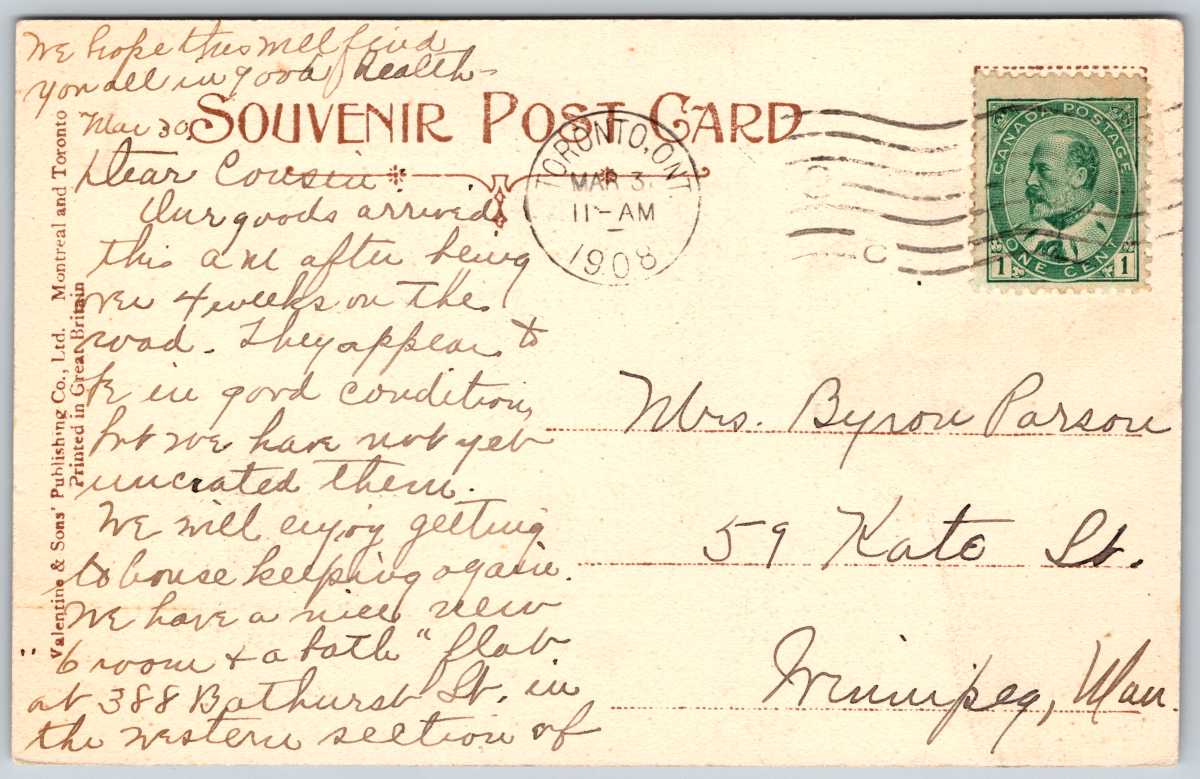 We hope this will find
you all in good health -
SOUVENIR POST CARD
Mar 30,
Dear Cousin
Our goods arrived
this a M after being
over 4 weeks on the
road. They appear to
be in good condition,
but we have not yet
uncrated them.
We will enjoy getting
to house keeping again.
We have a nice new
"6 room & a bath" flat
at 388 Bathurst St. in
the western section of
Valentine & Sons' Publishing Co., Ltd. Montreal and Toronto
Printed in Great Britain
TORONTO, ONT.
MAR 3
11-AM
1908
CANADA POSTAGE
1 ONE CENT 1
Mrs. Byron Parson
59 Kate St.
Winnipeg, Man.